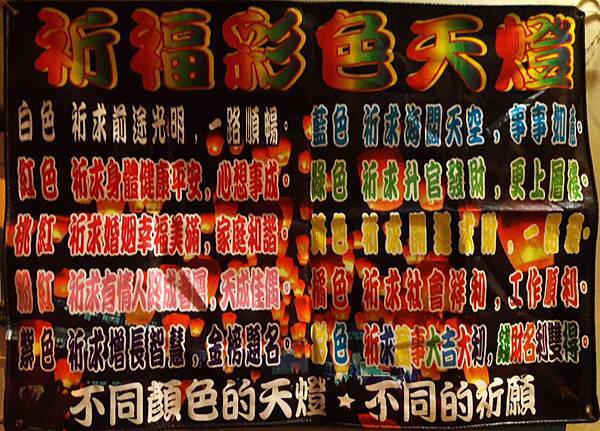 祈福彩色天燈
白色 祈求前途光明，一路順暢。
紅色 祈求身體健康平安，心想事成。
桃紅 祈求婚姻幸福美滿，家庭和諧。
粉紅 祈求有情人終成眷屬，天成佳偶。
紫色 祈求增長智慧，金榜題名。
藍色 祈求海闊天空，事事如意。
綠色 祈求升官發財，更上層樓。
色 祈求開運，一路
橘色 祈求社會祥和，工作順利。
色 祈求事大吉大利，錢財名利雙得。
不同顏色的天燈★不同的祈願